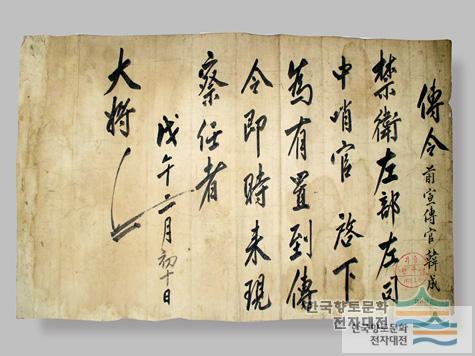 傳令 前宣傳官 薛成
禁衛左部左司
中哨官 啓下
爲有置到傳
令即時来現
察任者
戊午二月初十日
大將
한국향토문화
전자대전
한국향토문화
전자대전